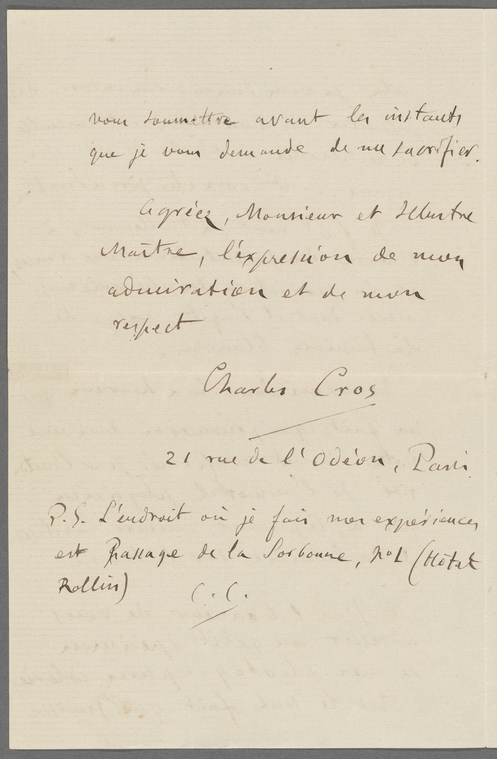 vous soumettre avant les instants
que je vous demande de me sacrifier.
Agréez, Monsieur et Illustre
Maître, l'expression de mon
admiration et de mon
respect
Charles Cros
21 rue de l'Odéon, Paris
P.S. L'endroit où je fais mes expériences
est Passage de la Sorbonne, no1 (Hôtel
Rollin)
C.C.